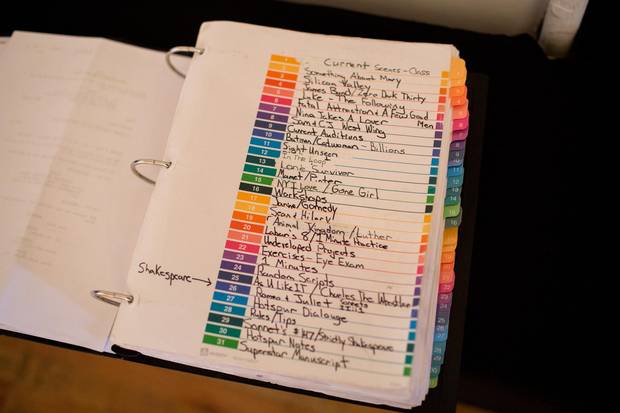 Current Scenes - Class
1
2 Something About Mary
3 Silicon Valley
4 James Bond/Zero Dark Thirty
5 Jake - The Following
6 Fatal Attraction & A Few Good Men
7 Nina Takes A Lover
8 Sam & CJ West Wing
9 Current Auditions
10 Batman/Catwoman - Billions
11 Sight Unseen
12 In The Loop
13 Lone Survivor
14 Mamet/Pinter
15 NY I Love/Gone Girl
16 Workshops
17 Janine/Comedy
18 Sean & Hilary
19 Animal Kingdom/Luther
20 8/9 Minute Practice
21 Undeveloped Projects
22 Exercises - Eye Exam
23 Minutes!
24 Random Scripts
Shakespeare → 25 As U Like IT/Charles The Wrestler
26 Romeo & Juliet
27 Hotspur Dialouge
28 Roles/Tips
29 Sonnet's #147/Strictly Shakespeare
30 Hotspur Notes
31 Superstar Manuscript